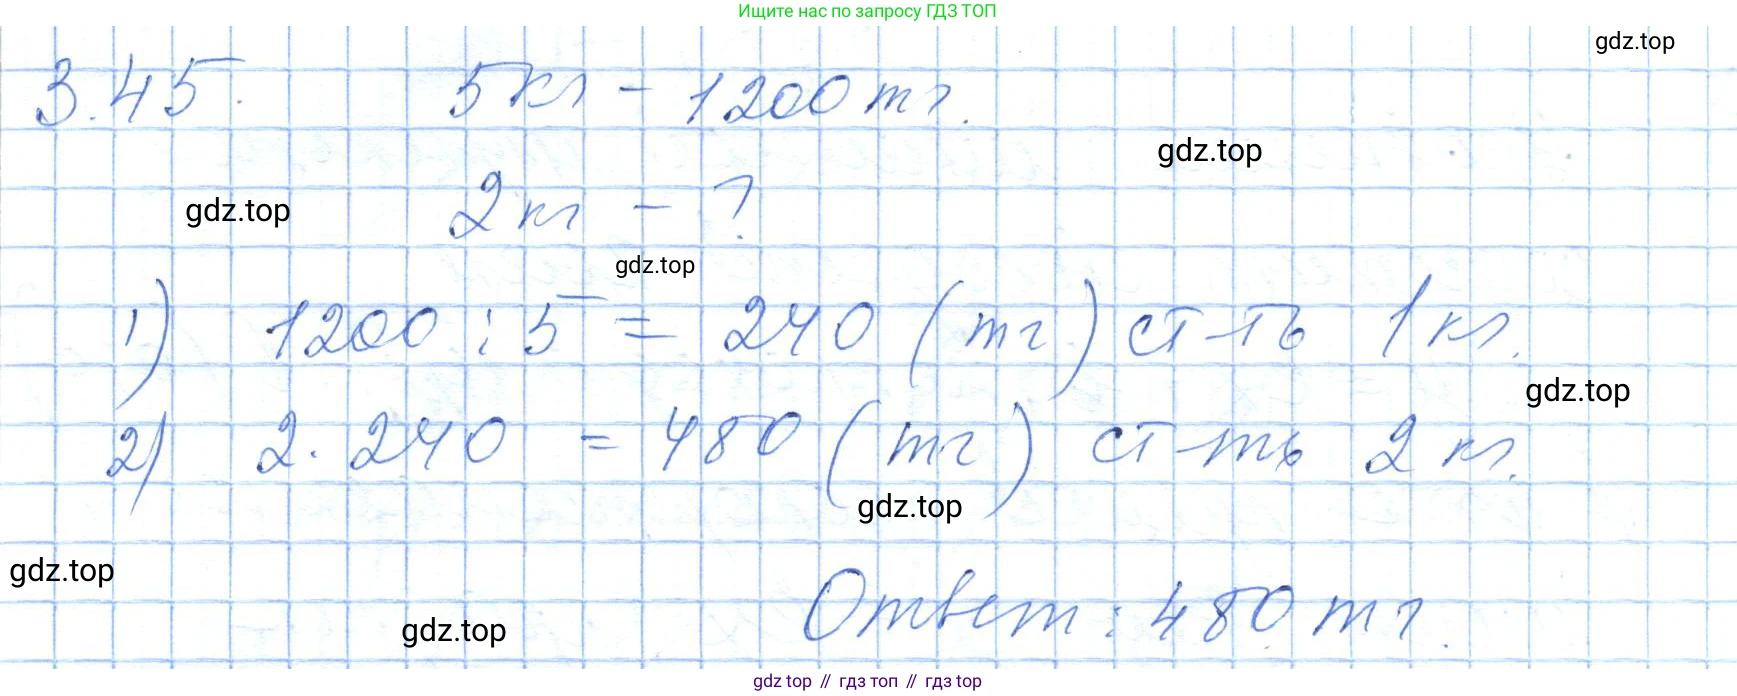 Ищите нас по запросу ГДЗ ТОП
gdz.top
3.45. 5 кг - 1200 тг.
gdz.top
2 кг - ?
gdz.top
gdz.top
1) 1200 : 5 = 240 (тг) ст-ть 1 кг.
gdz.top
2) 2 · 240 = 480 (тг) ст-ть 2 кг.
gdz.top
gdz.top
Ответ: 480 тг.
gdz.top
gdz.top // гдз топ // gdz.top